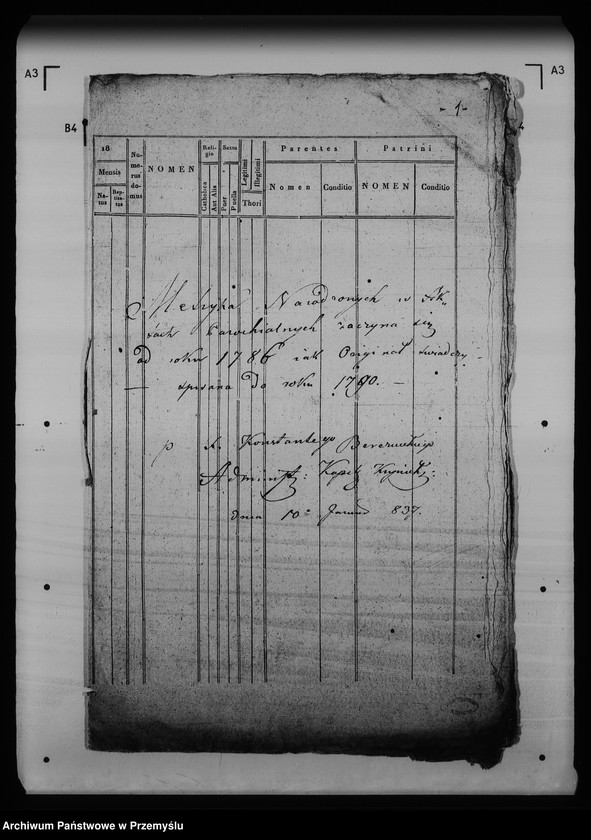 A3
A3
B4
4
- 1 -
18
Mensis
Natus
Baptisatus
Numerus domus
NOMEN
Religio
Catholica
Aut Alia
Sexus
Puer
Puella
Legitimi
Illegitimi
Thori
Parentes
Nomen
Conditio
Patrini
NOMEN
Conditio
Metryka Narodzonych w
Parochialnych zaczyna się
od roku 1786 iak Original świadczy
— spisana do roku 1790. —
p X. Konstantego
Administ:
dnia 10
837.
Archiwum Państwowe w Przemyślu